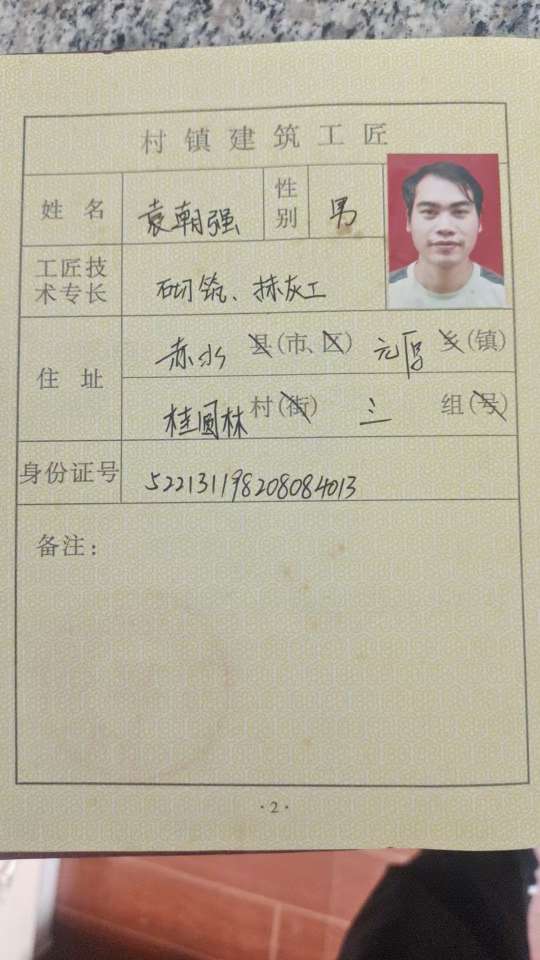 村镇建筑工匠
姓名 袁朝强 性别 男
工匠技术专长 砌筑、抹灰工
住址 赤水 县(市、区) 元厚 乡(镇)
桂圆林 村(街) 三 组(号)
身份证号 522131198208084013
备注：
·2·